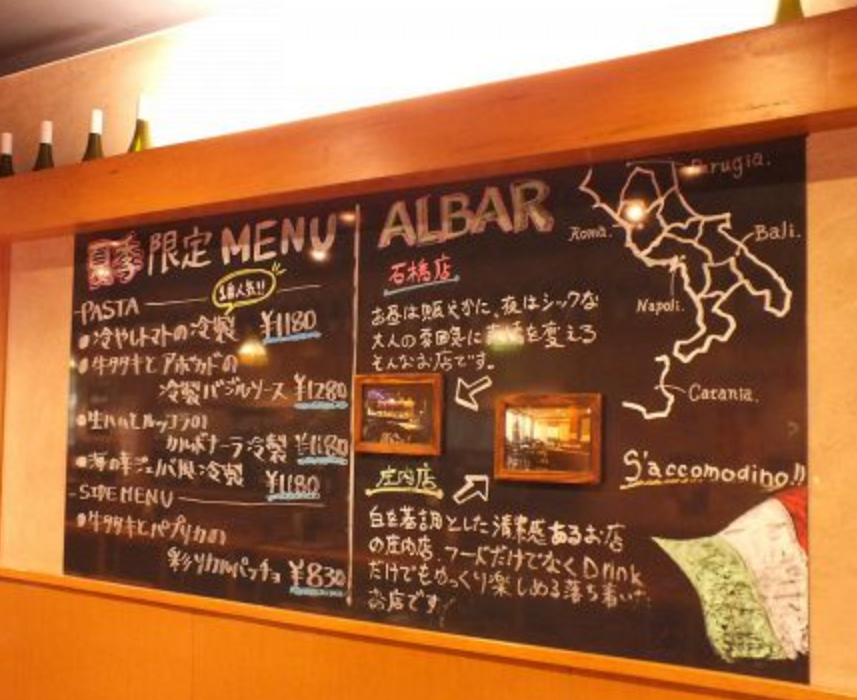 夏季限定MENU
1番人気!!
PASTA
冷やしトマトの冷製 ¥1180
牛タタキとアボカドの
冷製バジルソース ¥1280
生ハムとルッコラの
カルボナーラ冷製 ¥1180
海の幸ジェノバ風冷製
¥1180
SIDE MENU
牛タタキとパプリカの
彩りカルパッチョ ¥830
ALBAR
石橋店
お昼は賑やかに、夜はシックな
大人の雰囲気に表情を変える
そんなお店です。
庄内店
白を基調とした清潔感あるお店
の庄内店。フードだけでなくDrink
だけでもゆっくり楽しめる落ち着いた
お店です
Perugia.
Roma.
Bali.
Napoli.
Catania.
S'accomodino!!